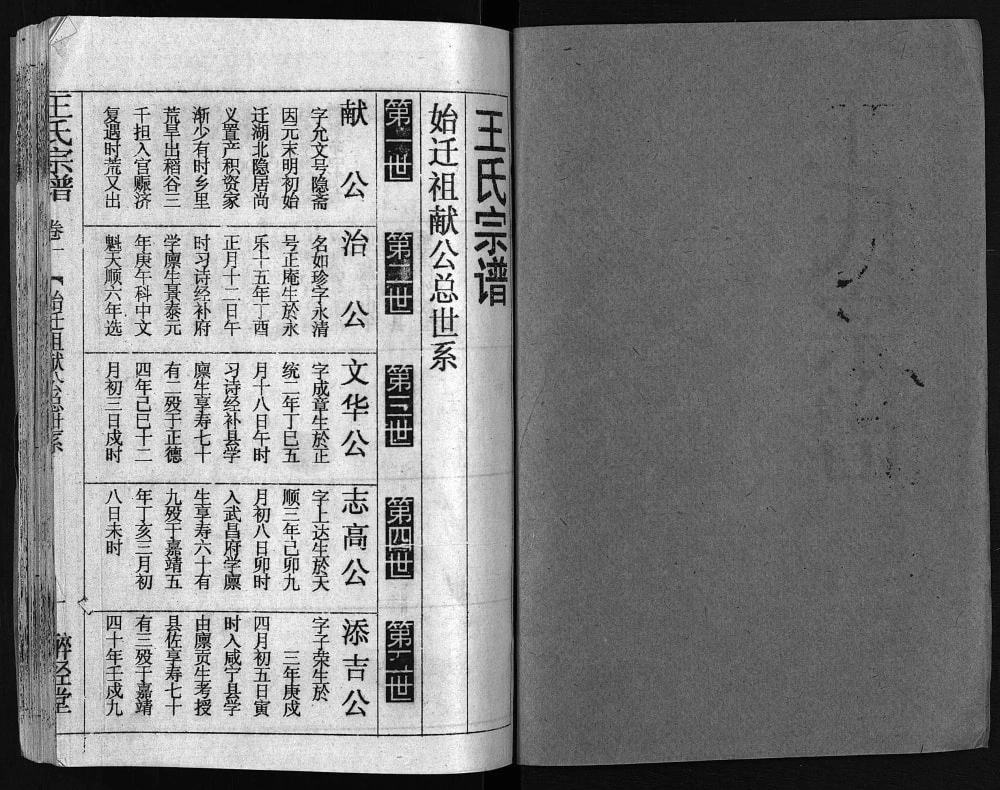 王氏宗谱
始迁祖献公总世系
第一世
献公
字允文号隐斋
因元末明初始
迁湖北隐居尚
义置产积资家
渐少有时乡里
荒旱出稻谷三
千担入官赈济
复遇时荒又出
第二世
治公
名如珍字永清
号正庵生於永
乐十五年丁酉
正月十二日午
时习诗经补府
学廪生景泰元
年庚午科中文
魁天顺六年选
第三世
文华公
字成章生於正
统二年丁巳五
月十八日午时
习诗经补县学
廪生享寿七十
有二殁于正德
四年己巳十二
月初三日戌时
第四世
志高公
字上达生於天
顺三年己卯九
月初八日卯时
入武昌府学廪
生享寿六十有
九殁于嘉靖五
年丁亥三月初
八日未时
第五世
添吉公
字子荣生於
三年庚戌
四月初五日寅
时入咸宁县学
由廪贡生考授
县佐享寿七十
有三殁于嘉靖
四十年壬戌九
王氏宗谱
卷一
始迁祖献公总世系
一
醉经堂